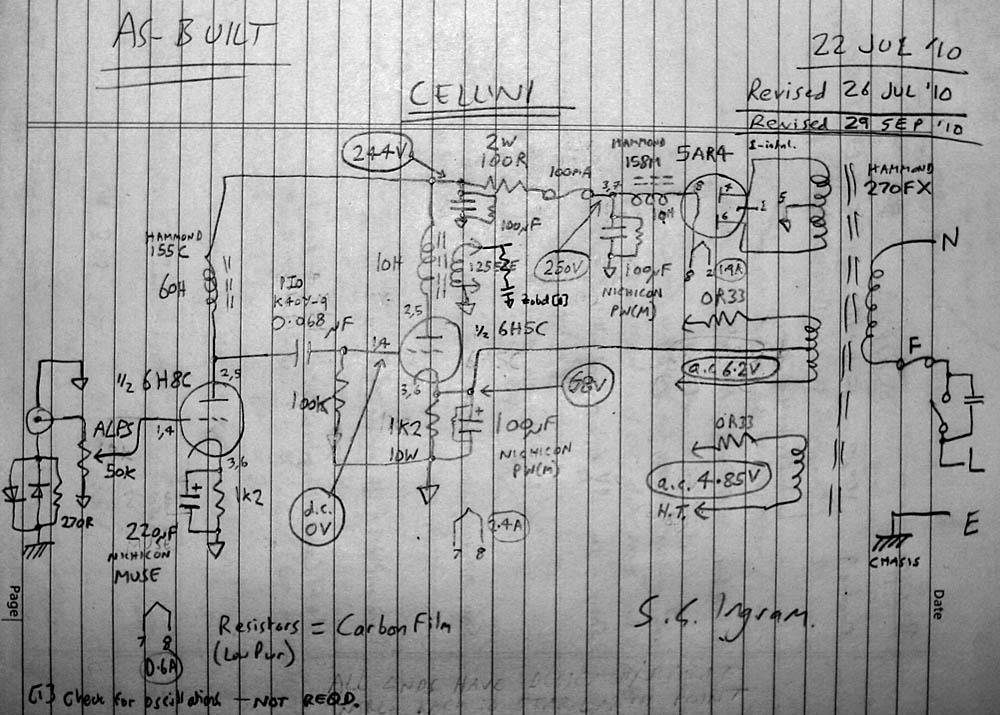 AS-BUILT
22 JUL '10
Revised 26 JUL '10
Revised 29 SEP '10
CELLINI
244V
2W
100R
100mA
HAMMOND
158M
5AR4
HAMMOND
270FX
3,7
8
4
6
5
10H
100µF
250V
100µF
NICHICON
PW(M)
8 2
1.9A
N
HAMMOND
155C
60H
PIO
K40Y-9
0.068µF
10H
Zobel [1]
2,5
½ 6H5C
1,4
3,6
68V
0R33
a.c 6.2V
F
½ 6H8C
2,5
1,4
3,6
ALPS
50K
100K
1K2
10W
100µF
NICHICON
PW(M)
0R33
a.c. 4.85V
H.T.
L
270R
1k2
220µF
NICHICON
MUSE
d.c.
0V
2.4A
7 8
E
CHASIS
Page
Date
7 8
0.6A
Resistors = Carbon Film
(Low Pwr)
S.G. Ingram.
[1] Check for oscillations — NOT REQD.